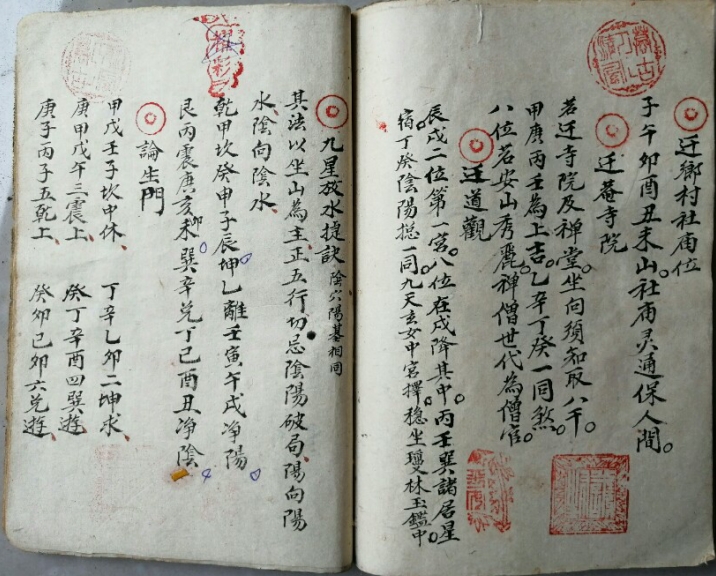 迁鄉村社庙位
子午卯酉丑未山。社庙灵通保人間。
迁菴寺院
若迁寺院及禅堂。坐向須知取八干。
甲庚丙壬為上吉。乙辛丁癸一同煞。
八位若安山秀麗。禅僧世代為僧官。
迁道觀
辰戌二位第一宮。八位在戌降其中。丙壬巽諸居星
宿。丁癸陰陽捴一同。九天玄女中宮擇。穩坐瓊林玉鑑中。
九星放水捷訣 陰穴陽基相同
其法以坐山為主正五行切忌陰陽破局陽向陽
水陰向陰水
乾甲坎癸申子辰坤乙離壬寅午戌净陽
艮丙震庚亥卯未巽辛兑丁己酉丑净陰
論生門
甲戊壬子坎中休 丁辛乙卯二坤求
庚甲戊午三震上 癸丁辛酉四巽遊
庚子丙子五乾上 癸卯己卯六兑遊